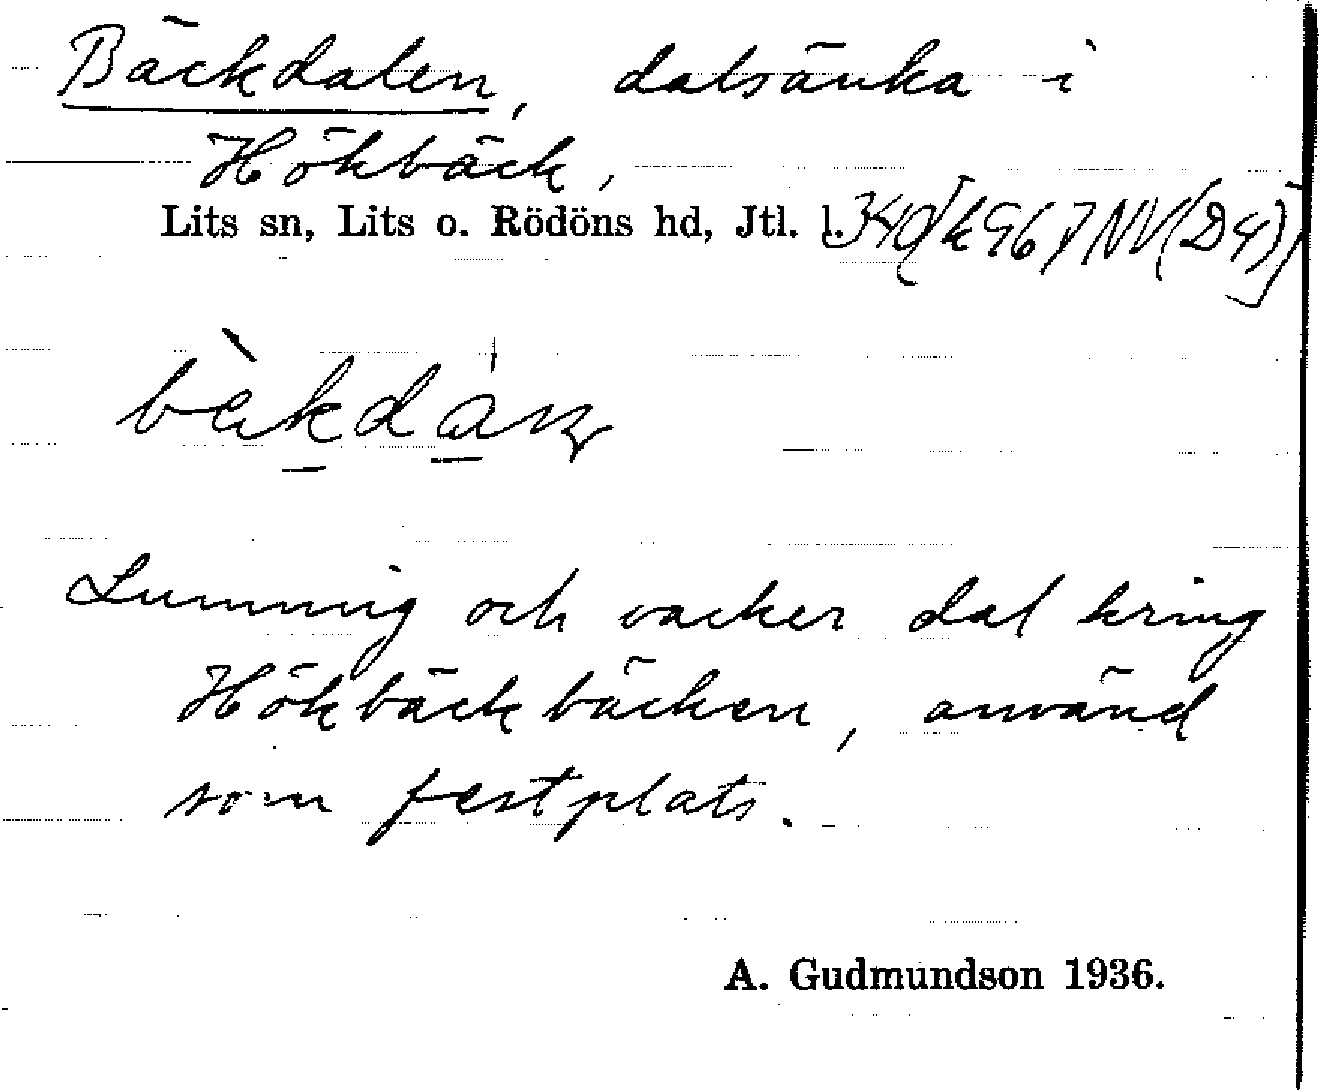 Bäckdalen, dalsänka i
Hökbäck,
Lits sn, Lits o. Rödöns hd, Jtl. l.
Lummig och vacker dal kring
Hökbäckbäcken, använd
som festplats.
A. Gudmundson 1936.